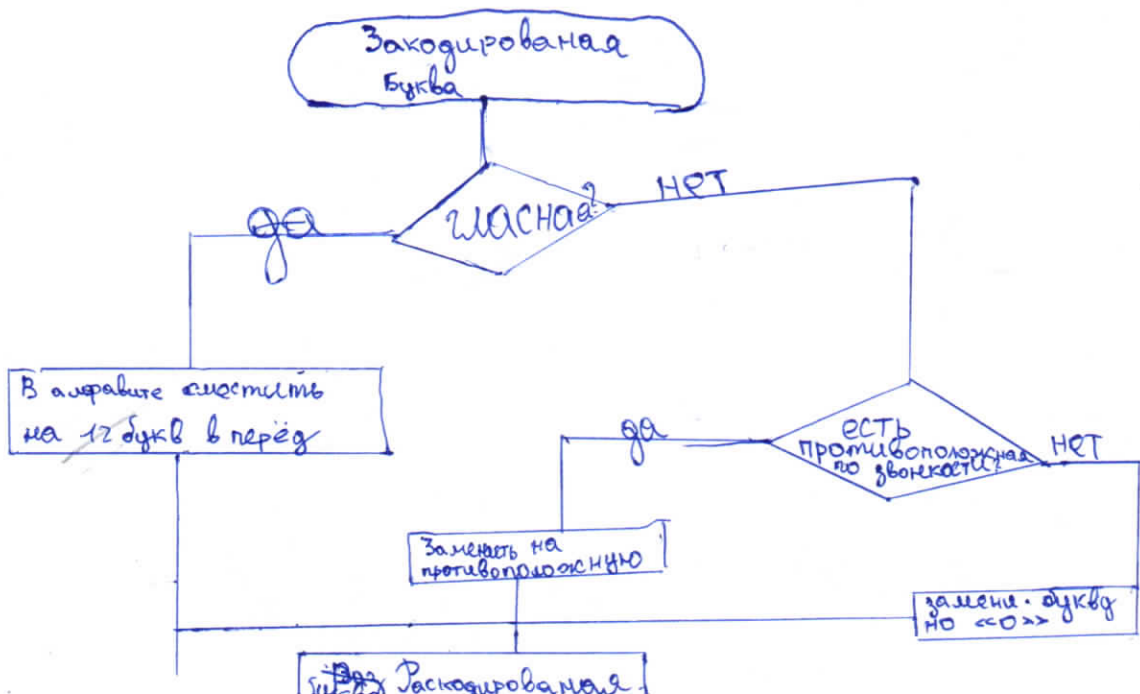 Закодированая
Буква
гласная?
да
нет
В алфавите сместить
на 12 букв в перёд
есть
противоположная
по звонкости?
да
нет
Заменить на
противоположную
замени. букву
но «о»
Раскодированая